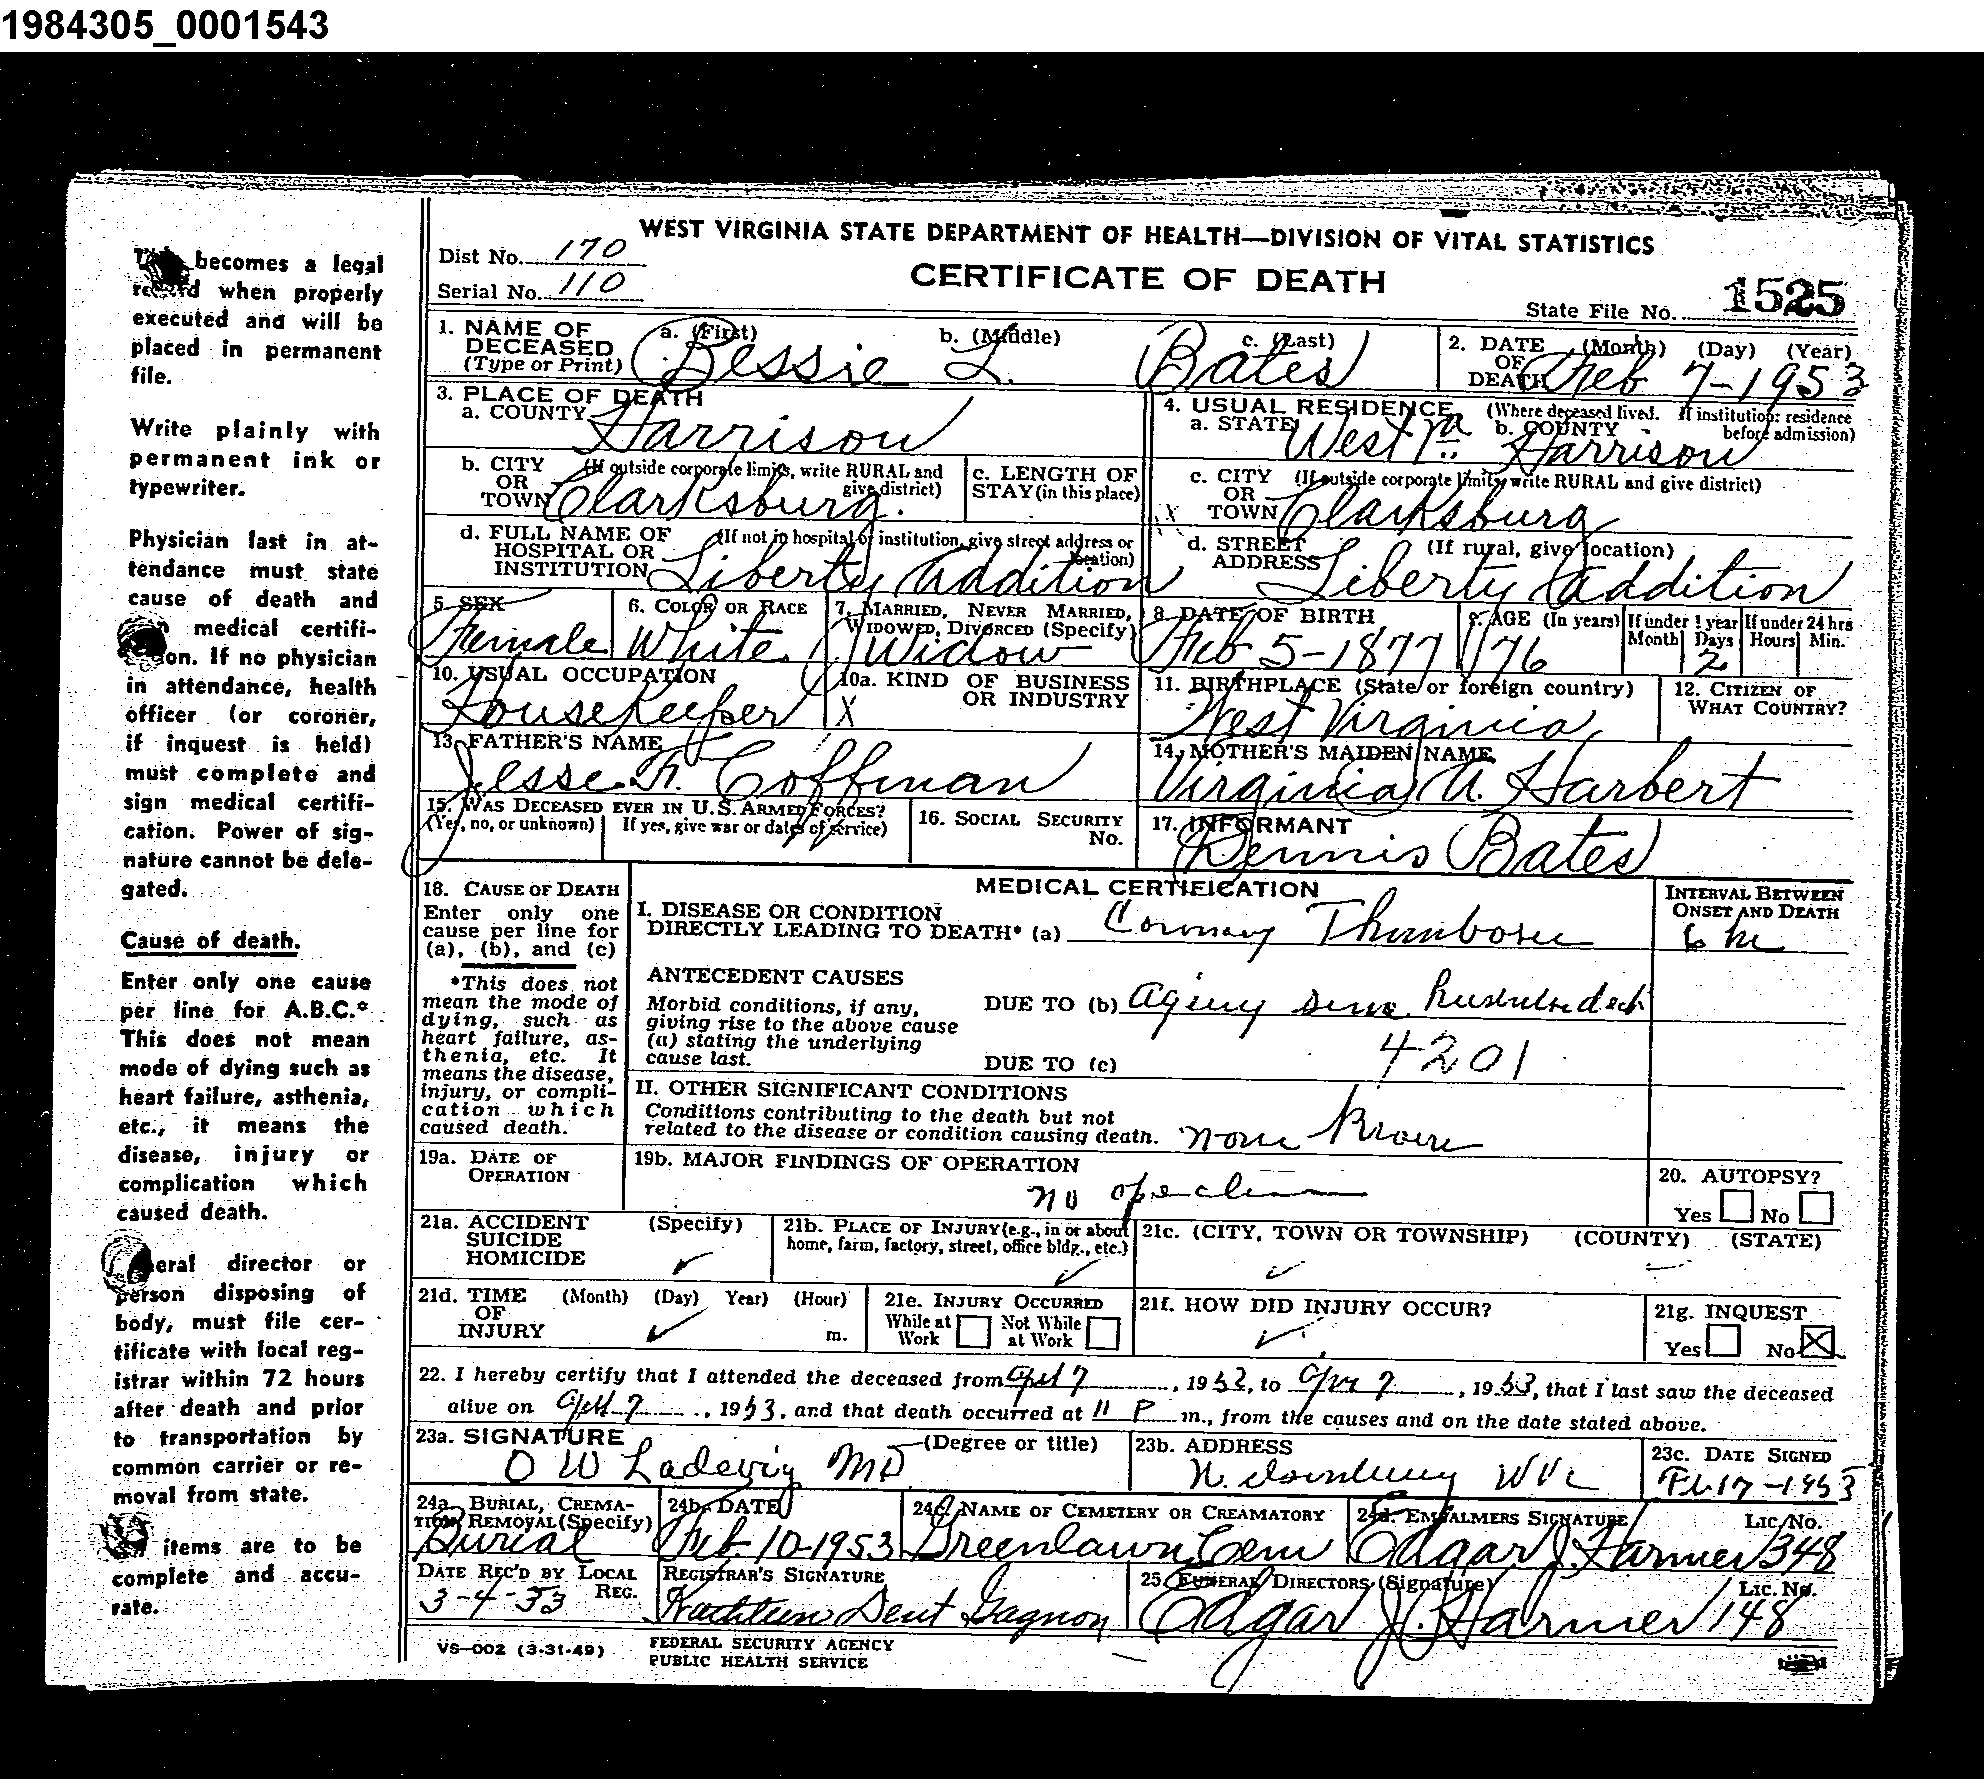 1984305_0001543
WEST VIRGINIA STATE DEPARTMENT OF HEALTH—DIVISION OF VITAL STATISTICS
Dist No. 170
CERTIFICATE OF DEATH
Serial No. 110
State File No. 1525
1. NAME OF DECEASED (Type or Print) a. (First) b. (Middle) c. (Last)
Bessie L. Bates
2. DATE OF DEATH (Month) (Day) (Year)
Feb 7-1953
3. PLACE OF DEATH
a. COUNTY Harrison
4. USUAL RESIDENCE (Where deceased lived. If institution: residence before admission)
a. STATE West Va. b. COUNTY Harrison
b. CITY OR TOWN (If outside corporate limits, write RURAL and give district)
Clarksburg.
c. LENGTH OF STAY (in this place)
c. CITY OR TOWN (If outside corporate limits, write RURAL and give district)
X Clarksburg
d. FULL NAME OF HOSPITAL OR INSTITUTION (If not in hospital or institution, give street address or location)
Liberty Addition
d. STREET ADDRESS (If rural, give location)
Liberty Addition
5. SEX Female
6. COLOR OR RACE White
7. MARRIED, NEVER MARRIED, WIDOWED, DIVORCED (Specify) Widow
8. DATE OF BIRTH Feb 5-1877
9. AGE (In years) 76
If under 1 year Month Days 2
If under 24 hrs Hours Min.
10. USUAL OCCUPATION
Housekeeper
10a. KIND OF BUSINESS OR INDUSTRY
X
11. BIRTHPLACE (State or foreign country)
West Virginia
12. CITIZEN OF WHAT COUNTRY?
13. FATHER'S NAME
Jesse F. Coffman
14. MOTHER'S MAIDEN NAME
Virginia A. Harbert
15. WAS DECEASED EVER IN U.S. ARMED FORCES?
(Yes, no, or unknown) If yes, give war or dates of service)
16. SOCIAL SECURITY No.
17. INFORMANT
Dennis Bates
18. CAUSE OF DEATH
Enter only one cause per line for (a), (b), and (c)
*This does not mean the mode of dying, such as heart failure, asthenia, etc. It means the disease, injury, or complication which caused death.
MEDICAL CERTIFICATION
INTERVAL BETWEEN ONSET AND DEATH
I. DISEASE OR CONDITION DIRECTLY LEADING TO DEATH* (a) Coronary Thrombosis
6 hr
ANTECEDENT CAUSES
Morbid conditions, if any, giving rise to the above cause (a) stating the underlying cause last.
DUE TO (b)
DUE TO (c) 4201
II. OTHER SIGNIFICANT CONDITIONS
Conditions contributing to the death but not related to the disease or condition causing death. none known
19a. DATE OF OPERATION
19b. MAJOR FINDINGS OF OPERATION
no operation
20. AUTOPSY?
Yes No
21a. ACCIDENT SUICIDE HOMICIDE (Specify)
21b. PLACE OF INJURY (e.g., in or about home, farm, factory, street, office bldg., etc.)
21c. (CITY, TOWN OR TOWNSHIP) (COUNTY) (STATE)
21d. TIME OF INJURY (Month) (Day) Year) (Hour) m.
21e. INJURY OCCURRED
While at Work Not While at Work
21f. HOW DID INJURY OCCUR?
21g. INQUEST
Yes No X
22. I hereby certify that I attended the deceased from , 19 , to , 1953, that I last saw the deceased
alive on , 1953, and that death occurred at 11 P m., from the causes and on the date stated above.
23a. SIGNATURE (Degree or title)
O W Ladevig MD
23b. ADDRESS
W Va
23c. DATE SIGNED
24a. BURIAL, CREMATION REMOVAL (Specify)
Burial
24b. DATE
Feb. 10-1953
24c. NAME OF CEMETERY OR CREAMATORY
Greenlawn Cem
24d. EMBALMERS SIGNATURE Lic. No.
Edgar J. Harmer 348
DATE REC'D BY LOCAL REG.
3-4-53
REGISTRAR'S SIGNATURE
Kathleen Dent Gagnon
25. FUNERAL DIRECTORS (Signature) Lic. No.
Edgar J. Harmer 148
VS-002 (3-31-49)
FEDERAL SECURITY AGENCY
PUBLIC HEALTH SERVICE
becomes a legal
record when properly
executed and will be
placed in permanent
file.
Write plainly with
permanent ink or
typewriter.
Physician last in at-
tendance must state
cause of death and
medical certifi-
on. If no physician
in attendance, health
officer (or coroner,
if inquest is held)
must complete and
sign medical certifi-
cation. Power of sig-
nature cannot be dele-
gated.
Cause of death.
Enter only one cause
per line for A.B.C.*
This does not mean
mode of dying such as
heart failure, asthenia,
etc., it means the
disease, injury or
complication which
caused death.
eral director or
person disposing of
body, must file cer-
tificate with local reg-
istrar within 72 hours
after death and prior
to transportation by
common carrier or re-
moval from state.
items are to be
complete and accu-
rate.